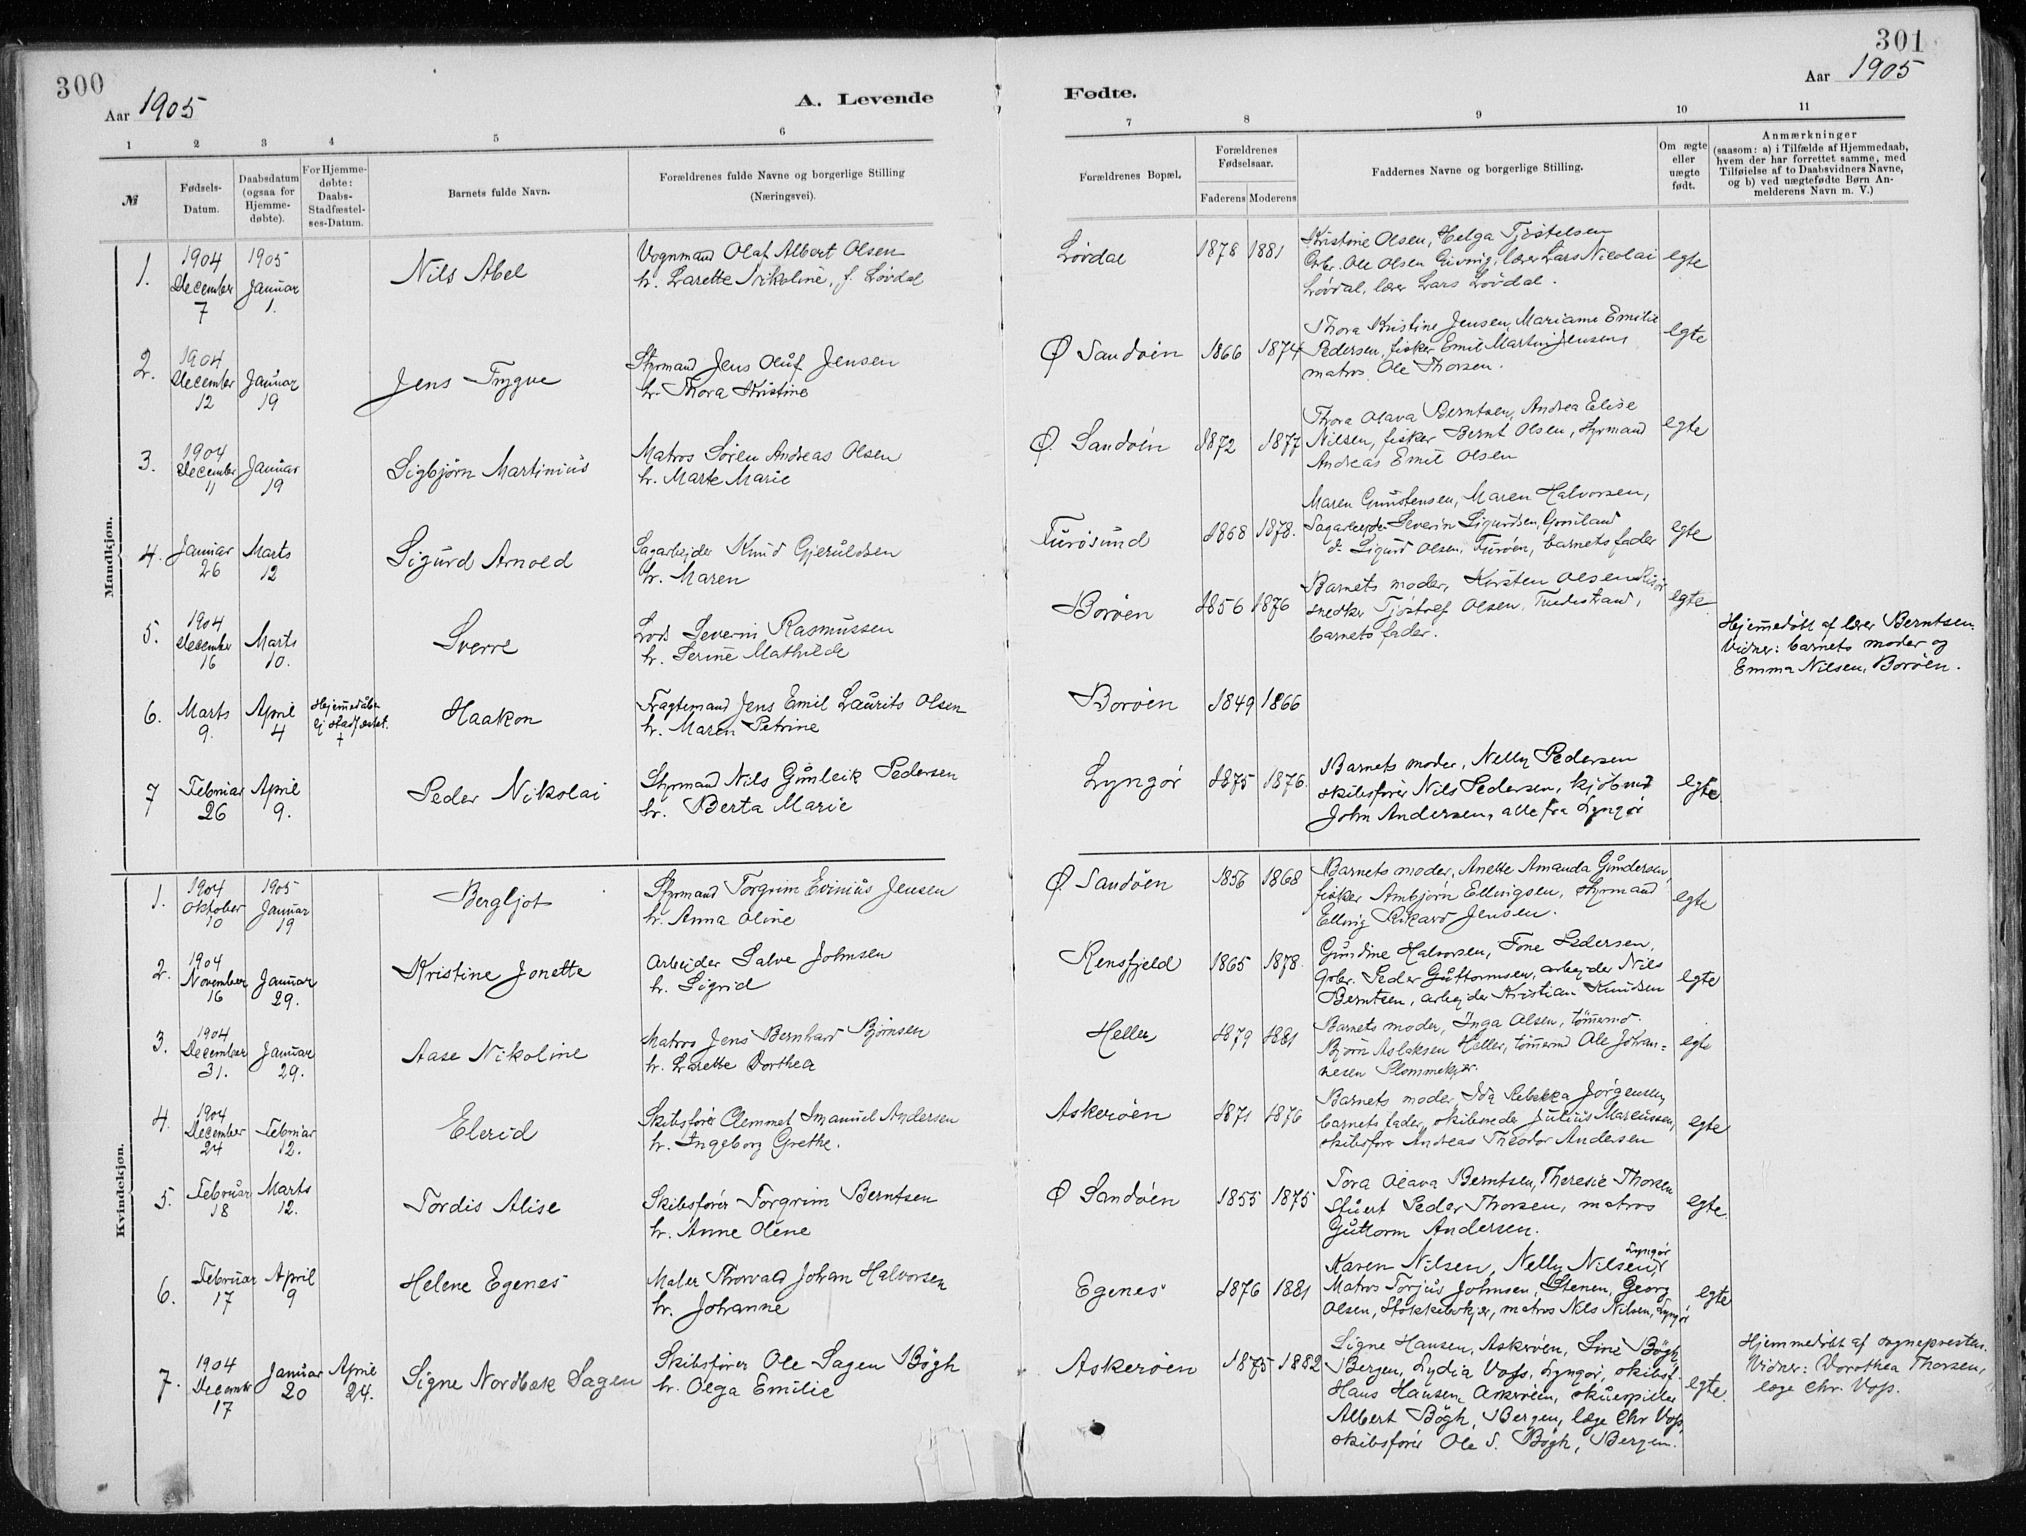 300
Aar 1905
A. Levende
1 2 3 4 5 6
№ Fødsels-Datum. Daabsdatum (ogsaa for Hjemme-døbte). For Hjemme-døbte: Daabs-Stadfæstel-ses-Datum. Barnets fulde Navn. Forældrenes fulde Navne og borgerlige Stilling (Næringsvei).
Mandkjøn.
1. 1904 December 7 1905 Januar 1. Nils Abel
Vognmand Olaf Albert Olsen
h. Larette Nikoline, f. Løvdal
2. 1904 December 12 Januar 19 Jens Trygve
Styrmand Jens Oluf Jensen
h. Thora Kristine
3. 1904 December 11 Januar 19 Sigbjørn Martinius
Matros Søren Andreas Olsen
h. Marte Marie
4. Januar 26 Marts 12 Sigurd Arnold
Sagarbejder Knud Gjeruldsen
h. Maren
5. 1904 December 16 Marts 10. Sverre
Lods Severin Rasmussen
h. Serine Mathilde
6. Marts 9. April 4 Hjemmedåben ej stadfæstet. † Haakon
Fragtemand Jens Emil Laurits Olsen
h. Maren Petrine
7 Februar 26 April 9. Peder Nikolai
Styrmand Nils Gunleik Pedersen
h. Berta Marie
Kvindekjøn.
1. 1904 Oktober 10 1905 Januar 19 Bergljot
Styrmand Torgrim Evinius Jensen
h. Anna Oline
2. 1904 November 16 Januar 29. Kristine Jonette
Arbejder Salve Johnsen
h. Sigrid
3. 1904 December 31. Januar 29. Aase Nikoline
Matros Jens Bernhard Bjørnsen
h. Larette Dorthea
4. 1904 December 24 Februar 12. Elerid
Skibsfører Clemmet Imanuel Andersen
h. Ingeborg Grethe.
5. Februar 18 Marts 12. Tordis Alise
Skibsfører Torgrim Berntsen
h. Anne Olene
6. Februar 17 April 9 Helene Egenes
Maler Thorvald Johan Halvorsen
h. Johanne
7. 1904 December 17 Januar 20 April 24. Signe Nordbak Sagen
Skibsfører Ole Sagen Bögh
h. Olga Emilie
301
Aar 1905
Fødte.
7 8 9 10 11
Forældrenes Bopæl. Forældrenes Fødselsaar. Faderens Moderens Faddernes Navne og borgerlige Stilling. Om ægte eller uægte født.
Anmærkninger
(saasom: a) i Tilfælde af Hjemmedaab,
hvem der har forrettet samme, med
Tilføielse af to Daabsvidners Navne,
og b) ved uægtefødte Børn An-
melderens Navn m. V.)
Løvdal 1878 1881 Kristine Olsen, Helga Tjøstelsen
Ole Olsen lærer Lars Nicolai egte
Løvdal, lærer Lars Løvdal.
Ø Sandøen 1866 1874 Thora Kristine Jensen, Mariame Emilie
Pedersen, fisker Emil Martin Jensen, egte
matros Ole Thorsen.
Ø. Sandøen 1872 1877 Thora Olava Berntsen, Andrea Elise
Nilsen, fisker Bernt Olsen, styrmand egte
Andreas Emil Olsen
Furøsund 1868 1878. Maren Gunstensen, Maren Halvorsen,
Sagarbejder Severin Sigurdsen, egte
do Sigurd Olsen, Furøen, barnets fader
Borøen 1856 1876 Barnets moder, Kirsten Olsen Risør egte
snedker Tjøstolf Olsen, Tvedestrand,
barnets fader.
Hjemmedøbt af lærer Berntsen.
Vidner: barnets moder og
Emma Nilsen, Borøen.
Borøen 1849 1866
Lyngør 1875 1876. Barnets moder, Nelly Pedersen
skibsfører Nils Pedersen, kjøbmd egte
John Andersen, alle fra Lyngør
Ø Sandøen 1856 1868 Barnets moder, Anette Amanda Gundersen,
fisker Arnbjørn Ellingsen, styrmand egte
Elling Rikard Jensen.
Rensfjeld 1865 1878. Gundine Halvorsen, Tone Pedersen,
Grbr. Peder Guttormsen, arbejder Nils egte
Berntsen, arbejder Kristian Knudsen
Heller 1879 1881 Barnets moder, Inga Olsen, tømrmd.
Bjørn Aslaksen Heller, tømrmd Ole Johan- egte
nesen Plommekjær.
Askerøen 1871 1876 Barnets moder Ida Rebekka Jørgensen,
barnets fader, skibsreder Julius Mareussen, egte
skibsfører Andreas Theodor Andersen
Ø Sandøen 1855 1875 Tora Olava Berntsen, Theresie Thorsen
Stuert Peder Thorsen, matros egte.
Guttorm Andersen.
Egenes 1876 1881 Karen Nilsen, Nelly Nilsen, Lyngør
Matros Torjus Johnsen, Stenen, Georg egte
Olsen, matros Nils Nilsen, Lyngør
Askerøen 1875 1882 Signe Hansen, Askerøen, Sine Bögh,
Bergen, Lydia Voss, Lyngør, skibsf.
Hans Hansen, Askerøen, skuespiller egte.
Albert Bögh, Bergen, læge Chr Voss,
skibsfører Ole S. Bögh, Bergen.
Hjemmedøbt af sognepresten.
Vidner: Dorothea Thorsen,
læge Chr. Voss.